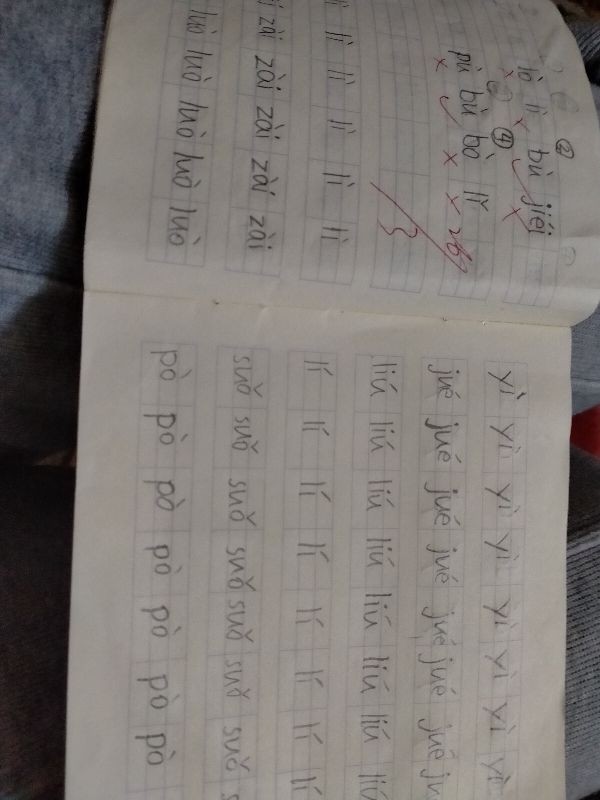 ② lò lì bù jiéi
④ pù bù bò lǐ
lì lì lì lì lì lì
zài zài zài zài zài
luò luò luò luò luò
yì yì yì yì yì yì yì yì
jué jué jué jué jué jué jué ju
liú liú liú liú liú liú liú liú
lí lí lí lí lí lí lí lí
suǒ suǒ suǒ suǒ suǒ suǒ suǒ s
pò pò pò pò pò pò pò